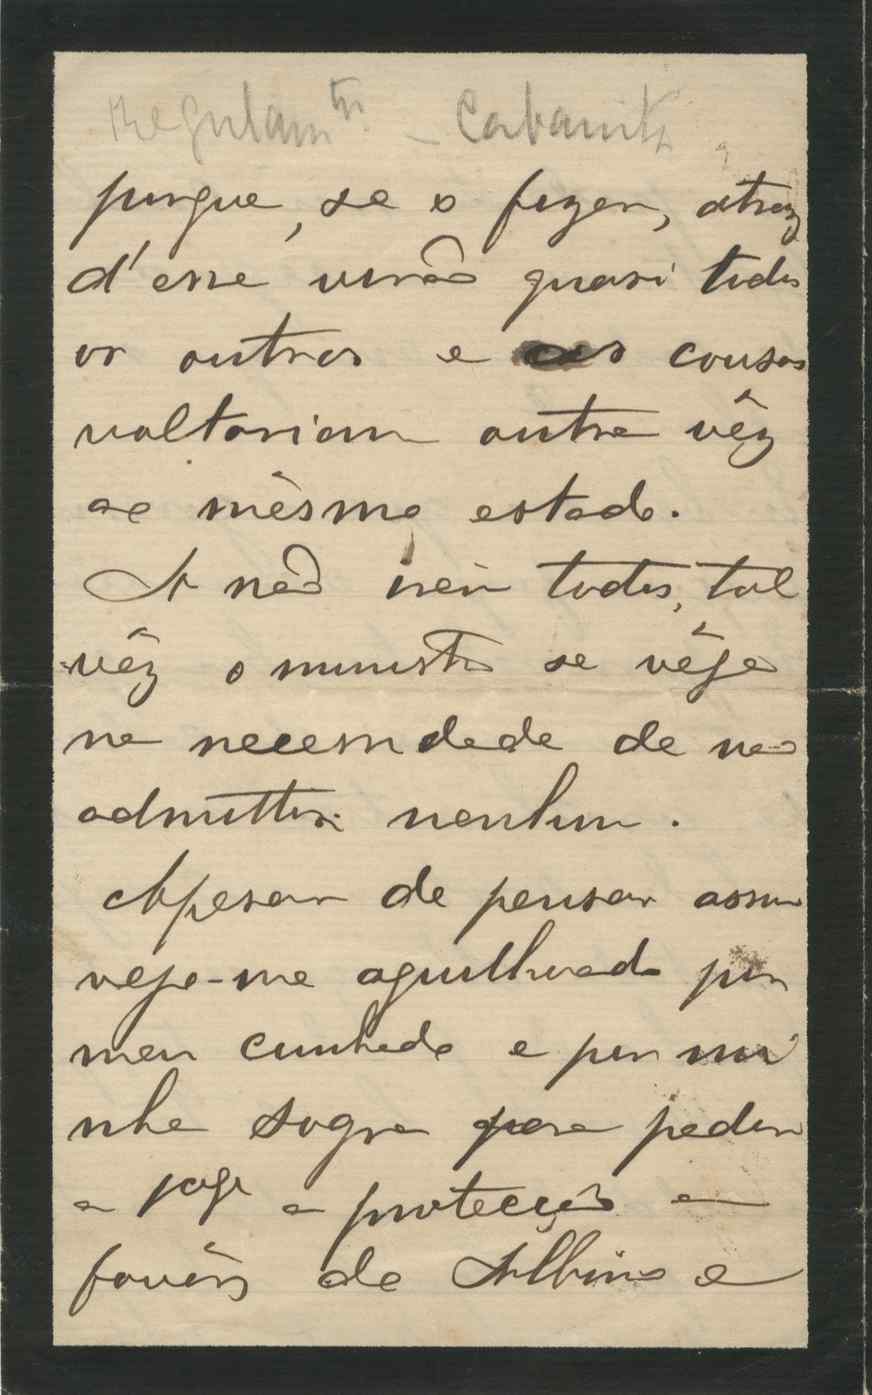 porque, se o fizer, atraz
d'esse virão quasi todos
os outros e as cousas
voltariam outra vêz
ao mêsmo estado.
A não irem todos, tal
vêz o ministro se vêja
na necessidade de não
admittir nenhum.
Apesar de pensar assim
vejo-me aguilhoado por
meu cunhado e por mi
nha sogra para pedir
a protecção a
favôr de Albino e